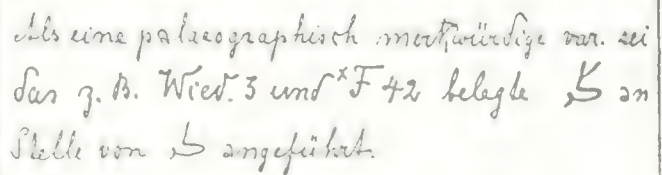 Als eine palaeographisch merkwürdige var. sei
das z. B. Wied. 3 und ˣF 42 belegte an
Stelle von angeführt.